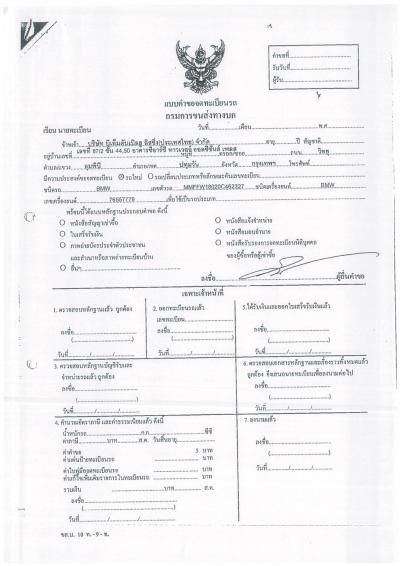 คำขอที่
รับวันที่
ผู้รับ
แบบคำขอจดทะเบียนรถ
กรมการขนส่งทางบก
วันที่ เดือน พ.ศ.
เรียน นายทะเบียน
ข้าพเจ้า บริษัท บีเอ็มดับเบิลยู ลีสซิ่ง(ประเทศไทย) จำกัด อายุ ปี สัญชาติ
อยู่บ้านเลขที่ เลขที่ 87/2 ชั้น 44,50 อาคารซีอาร์ซี ทาวเวอร์ ออลซีซั่นส์ เพลส ถนน วิทยุ
ตำบล/แขวง ลุมพินี อำเภอ/เขต ปทุมวัน จังหวัด กรุงเทพฯ โทรศัพท์
มีความประสงค์ขอจดทะเบียน รถใหม่ รถเปลี่ยนประเภทหรือลักษณะต้นเลขทะเบียน
ชนิดรถ BMW เลขตัวรถ ชนิดเครื่องยนต์ BMW
เลขเครื่องยนต์ 76557779 เพื่อใช้เป็นรถประเภท
พร้อมนี้ได้แนบหลักฐานประกอบคำขอ ดังนี้
หนังสือสัญญาเช่าซื้อ หนังสือแจ้งจำหน่าย
ใบเสร็จรับเงิน หนังสือมอบอำนาจ
ภาพถ่ายบัตรประจำตัวประชาชน หนังสือรับรองการจดทะเบียนนิติบุคคล
และสำเนาหรือภาพถ่ายทะเบียนบ้าน ของผู้ซื้อหรือผู้เช่าซื้อ
อื่นๆ
ลงชื่อ ผู้ยื่นคำขอ
เฉพาะเจ้าหน้าที่
1. ตรวจสอบหลักฐานแล้ว ถูกต้อง
ลงชื่อ
วันที่
2. ออกทะเบียนรถแล้ว
เลขทะเบียน
ลงชื่อ
วันที่
5. ได้รับเงินและออกใบเสร็จรับเงินแล้ว
ลงชื่อ
วันที่
3. ตรวจสอบหลักฐานบัญชีรับและ
จำหน่ายรถแล้ว ถูกต้อง
ลงชื่อ
วันที่
6. ตรวจสอบเอกสารหลักฐานและเรื่องราวทั้งหมดแล้ว
ถูกต้อง จึงเสนอนายทะเบียนเพื่อลงนามต่อไป
ลงชื่อ
วันที่
4. คำนวณอัตราภาษี และค่าธรรมเนียมแล้ว ดังนี้
น้ำหนักรถ ก.ก. ซีซี
ค่าภาษี บาท ส.ต. วันสิ้นอายุ
ค่าคำขอ 5 บาท
ค่าแผ่นป้ายทะเบียนรถ บาท
ค่าใบคู่มือจดทะเบียนรถ บาท
ค่าแก้ไขเพิ่มเติมรายการในทะเบียนรถ บาท
รวมเงิน บาท ส.ต.
ลงชื่อ
วันที่
7. ลงนามแล้ว
ลงชื่อ
วันที่